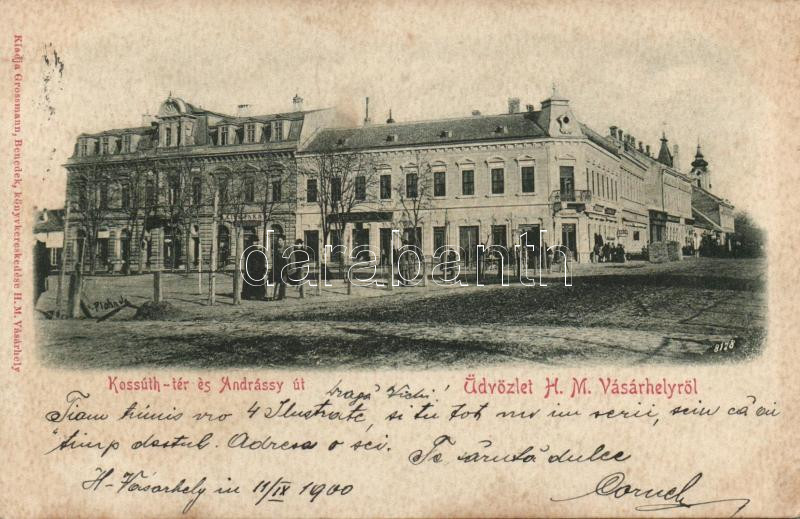 Kiadja Grossmann, Benedek, könyvkereskedése H. M. Vásárhely
darabanth
8128
Kossúth-tér és Andrássy út
Üdvözlet H. M. Vásárhelyröl
dragă
Ți-am trimis vro 4 Ilustrate, si tu tot nu im serii, sein că ai
timp destul. Adresa o sci. Te sărută dulce
H-Vásárhely in 11/IX 1900
Cornel